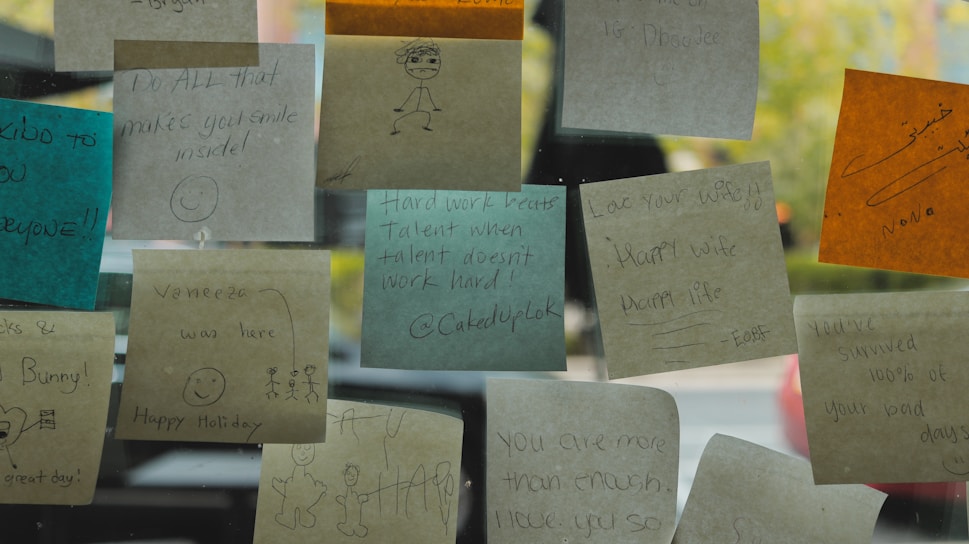 -Bryan
Do ALL that
makes you smile
inside!
is Dboujee
Kibo to
you
everyone!!
Hard work beats
Talent when
talent doesn't
work hard!
@CakedUpLok
Love your wife!!
Happy wife
Happy life
-EOBF
حبيبتي
NoNo
Vaneeza
was here
Happy Holiday
&
Bunny!
great day!
You've
survived
100% of
your bad
days
You are more
than enough.
you so